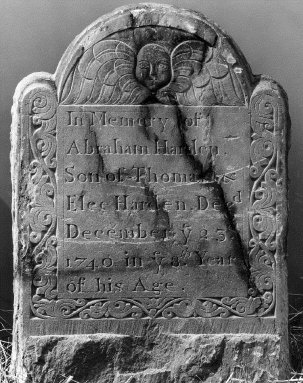 In Memory of
Abraham Harden
Son of Thomas &
Elec Harden Decd
December ye 25
1740 in ye 8 Year
of his Age.